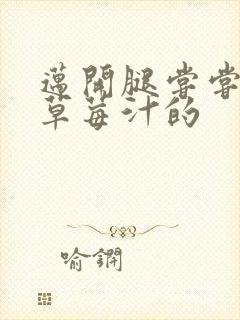 邁開腿嘗嘗
草莓汁的
喻鐗